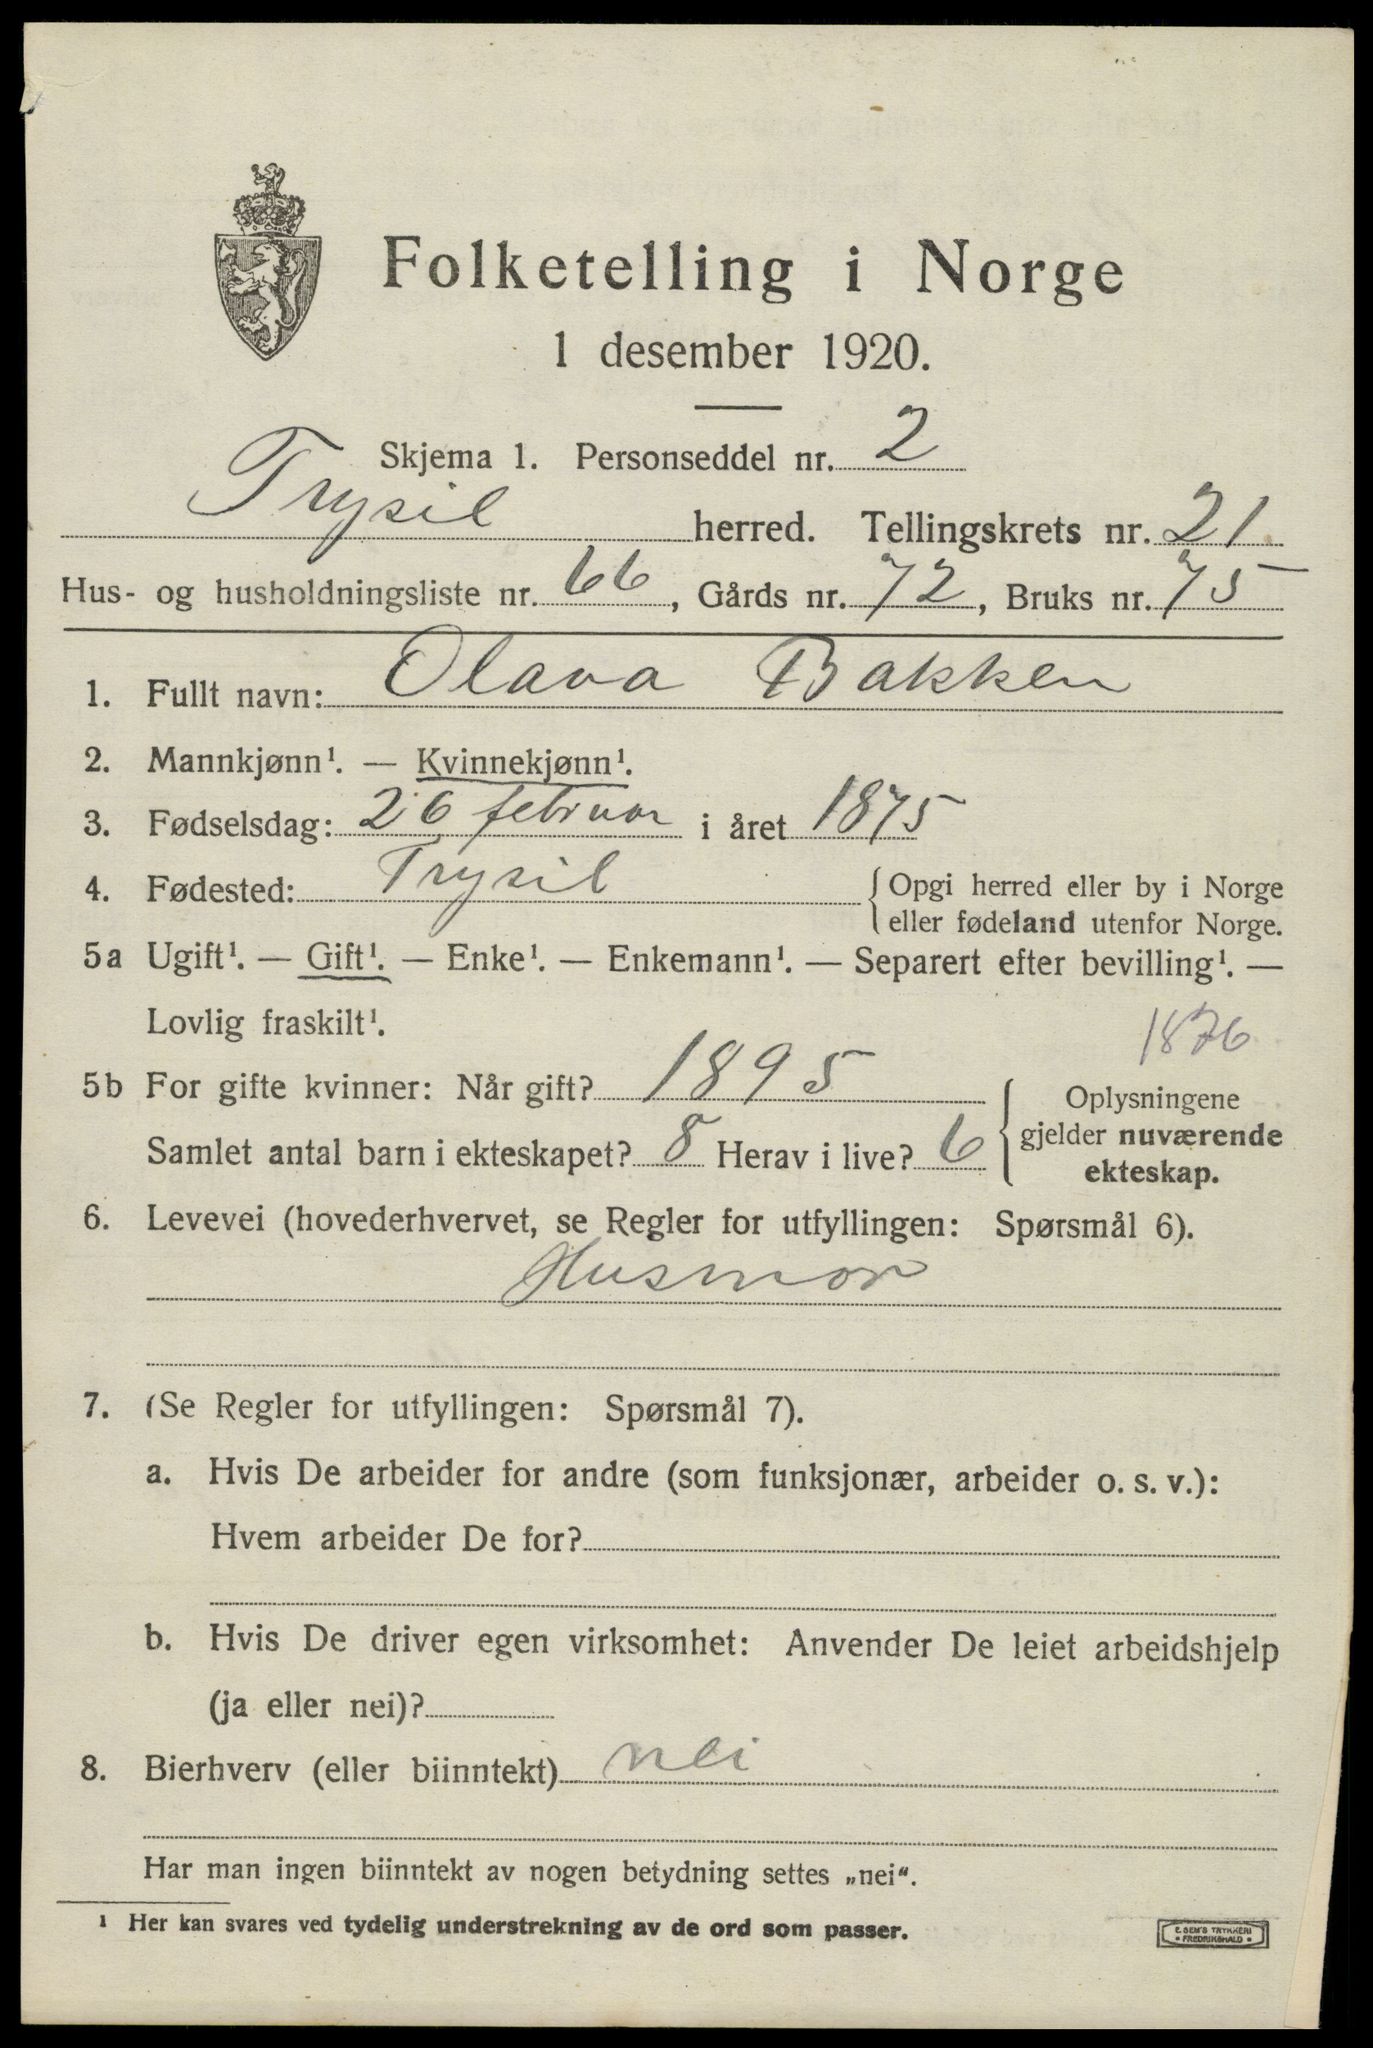 Folketelling i Norge
1 desember 1920.
Skjema 1. Personseddel nr. 2
Trysil herred. Tellingskrets nr. 21
Hus- og husholdningsliste nr. 66, Gårds nr. 72, Bruks nr. 75
1. Fullt navn: Olava Bakken
2. Mannkjønn¹. — Kvinnekjønn¹.
3. Fødselsdag: 26 februar i året 1875
4. Fødested: Trysil { Opgi herred eller by i Norge
eller fødeland utenfor Norge.
5a Ugift¹. — Gift¹. — Enke¹. — Enkemann¹. — Separert efter bevilling¹. —
Lovlig fraskilt¹.
1876
5b For gifte kvinner: Når gift? 1895 { Oplysningene
Samlet antal barn i ekteskapet? 8 Herav i live? 6 gjelder nuværende
ekteskap.
6. Levevei (hovederhvervet, se Regler for utfyllingen: Spørsmål 6).
Husmor
7. (Se Regler for utfyllingen: Spørsmål 7).
a. Hvis De arbeider for andre (som funksjonær, arbeider o. s. v.):
Hvem arbeider De for?
b. Hvis De driver egen virksomhet: Anvender De leiet arbeidshjelp
(ja eller nei)?
8. Bierhverv (eller biinntekt) nei
Har man ingen biinntekt av nogen betydning settes „nei“.
¹ Her kan svares ved tydelig understrekning av de ord som passer.
E. SEM'S TRYKKERI
FREDRIKSHALD